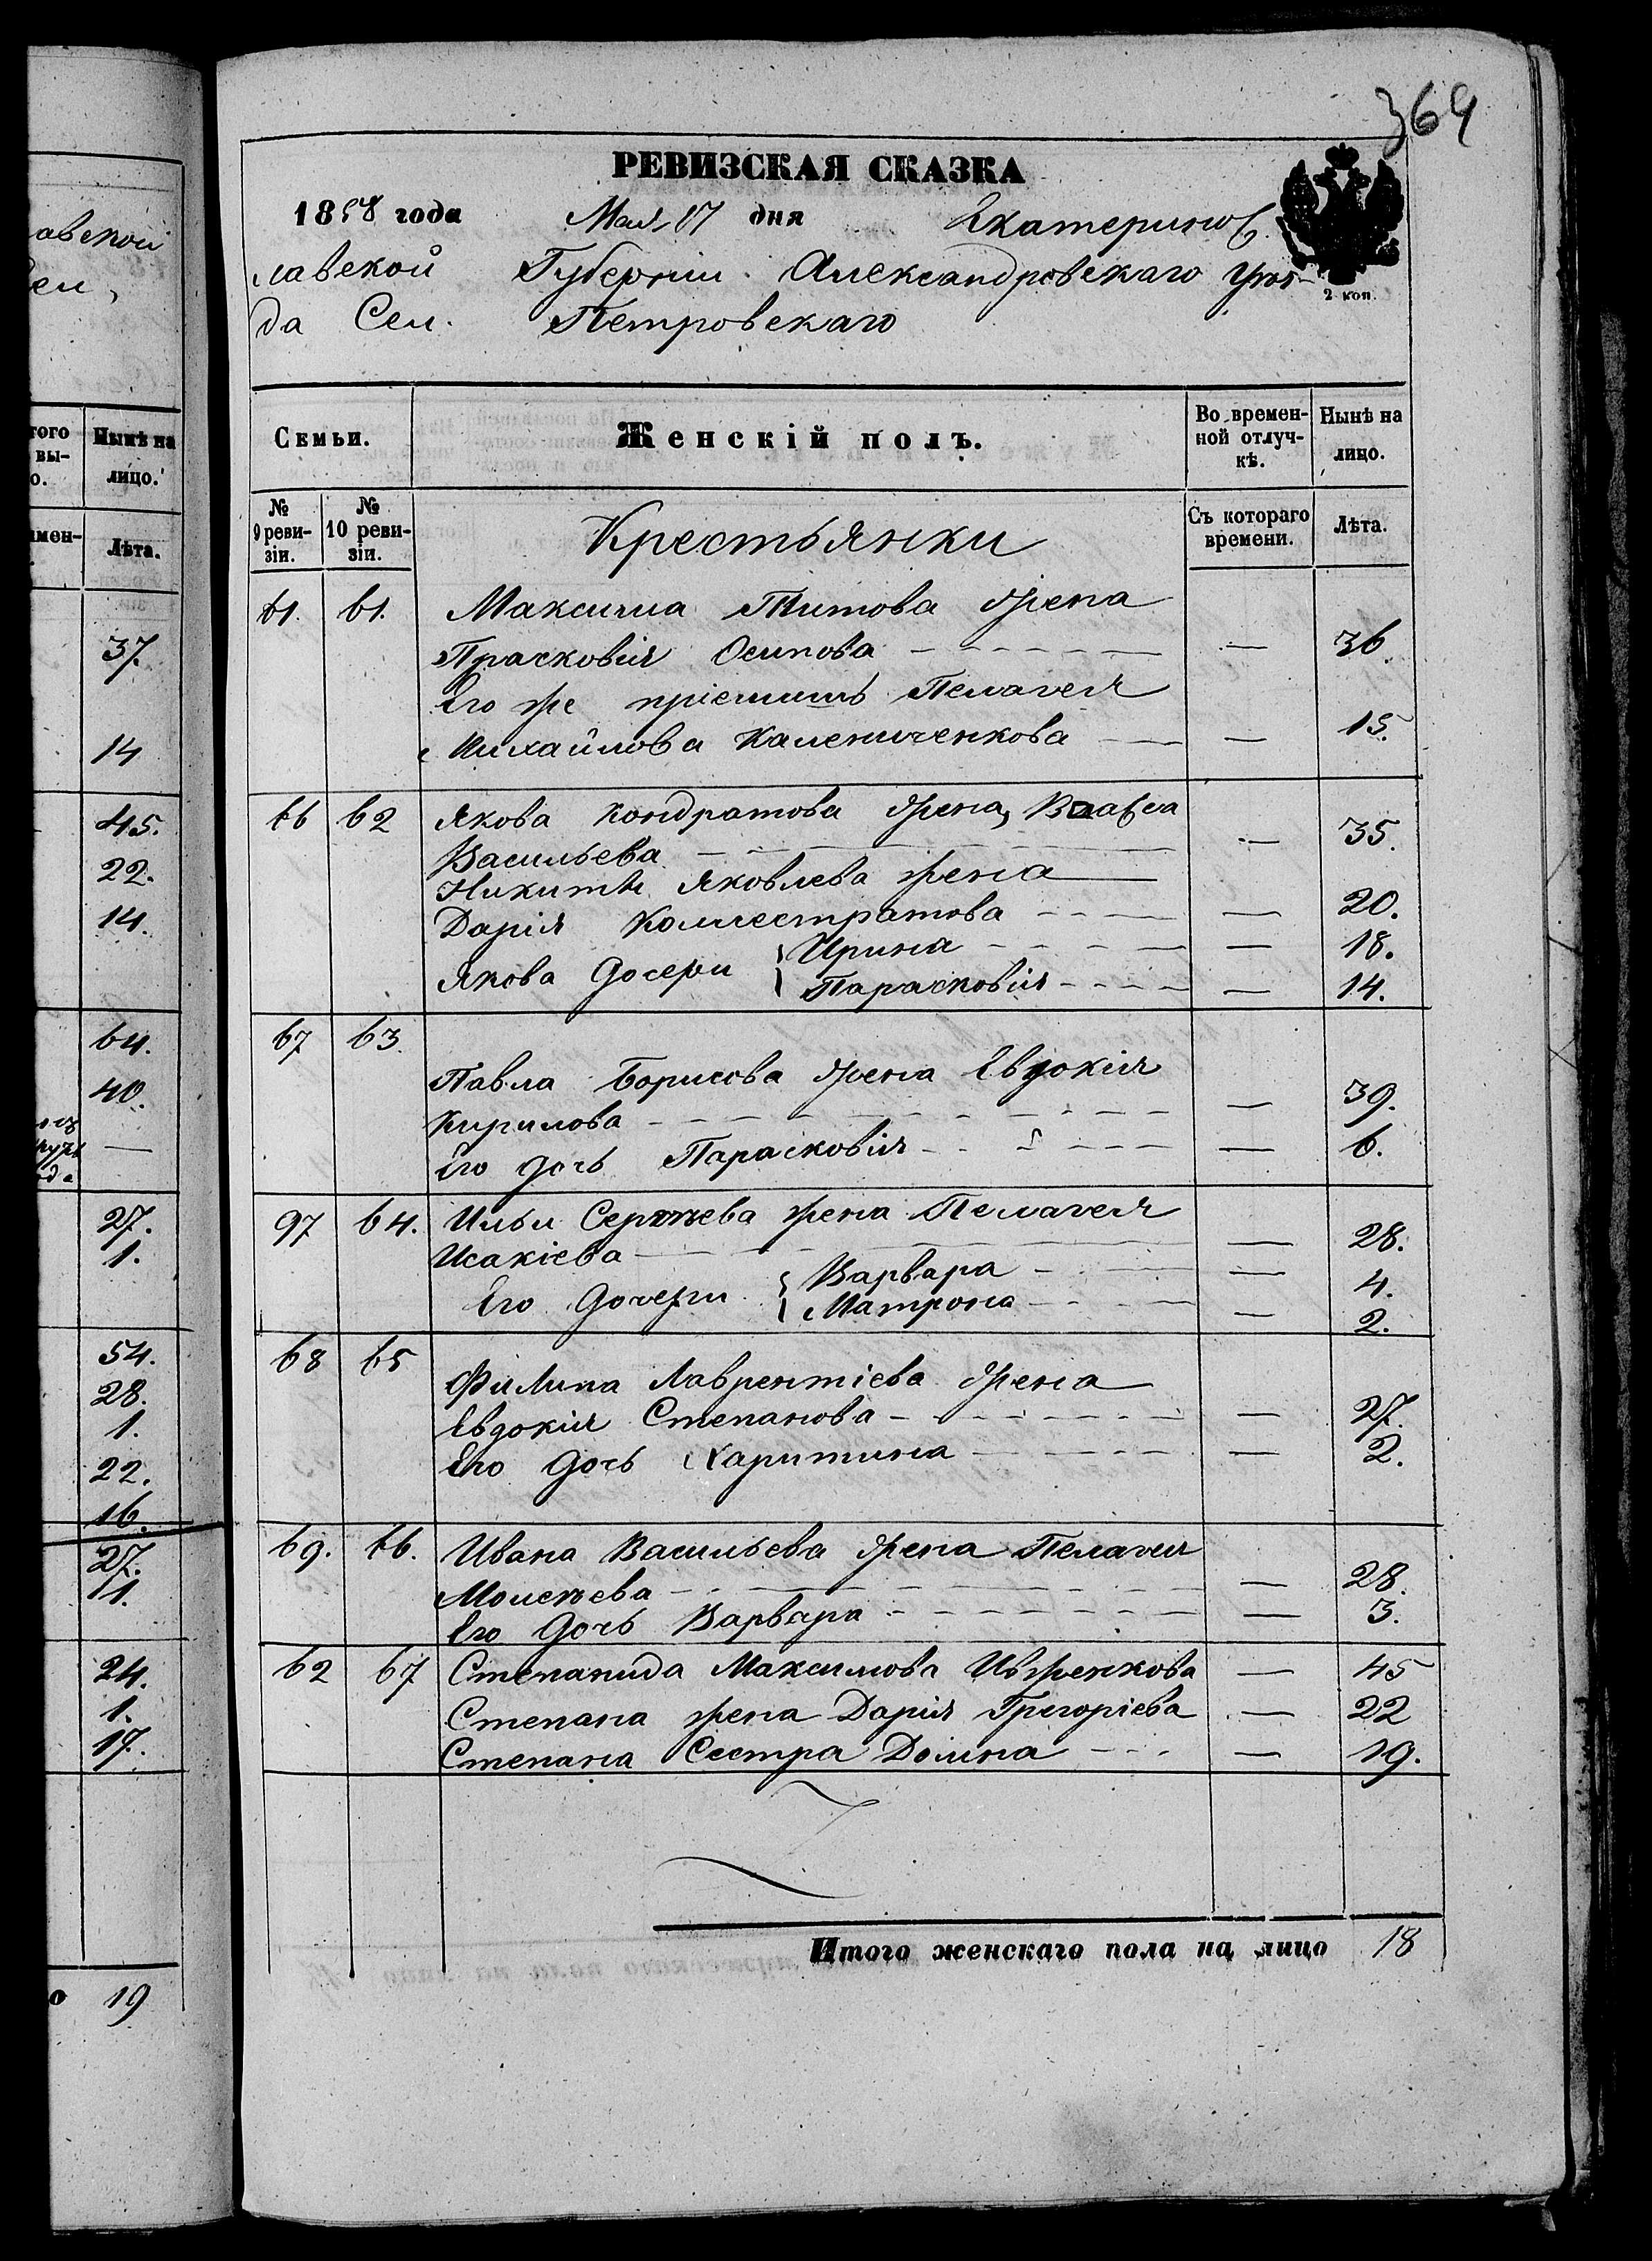 авской
364
РЕВИЗСКАЯ СКАЗКА
1858 года Мая 17 дня Екатеринос
лавской Губерніи Александровскаго Уѣз-
да Сел. Петровскаго
2 коп.
Семьи. Женскій полъ. Во времен-ной отлуч-кѣ. Нынѣ на лицо.
№ 9 реви-зіи. № 10 реви-зіи. Крестьянки Съ котораго времени. Лѣта.
61. 61. Максима Титова жена
Прасковія Осипова — 36
Его же пріемышъ Пелагея
Михайлова Калениченкова — 15.
66 62 Якова Кондратова жена,
Васильева — 35.
Никиты Яковлева жена
Дарія Каллестратова — 20.
Якова дочери Ирина — 18.
Парасковія — 14.
67 63. Павла Борисова жена Евдокія
Кирилова — 39.
Его дочь Парасковія — 6.
97 64. Ильи Сергѣева жена Пелагея
Исакіева — 28.
Его дочери Варвара — 4.
Матрона — 2.
68 65 Филипа Лаврентіева жена
Евдокія Степанова — 27.
Его дочь Харитина — 2.
69. 66. Ивана Васильева жена Пелагея
Моисѣева — 28.
Его дочь Варвара — 3.
62 67 Степанида Максимова Ивженкова — 45
Степана жена Дарія Григоріева — 22
Степана Сестра Домна — 19.
Итого женскаго пола на лицо 18
Нынѣ на
лицо.
Лѣта.
37.
14
45.
22.
14.
64.
40.
—
27.
1.
54.
28.
1.
22.
16.
27.
1.
24.
1.
17.
о 19